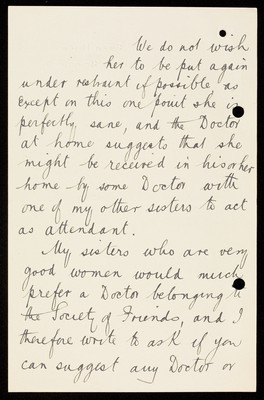 We do not wish
her to be put again
under restraint if possible as
except on this one point she is
perfectly sane, and the Doctor
at home suggests that she
might be received in his or her
home - by some Doctor with
one of my other sisters to act
as attendant.
My sisters who are very
good women would much
prefer a Doctor belonging to
the Society of Friends, and I
therefore write to ask if you
can suggest any Doctor or